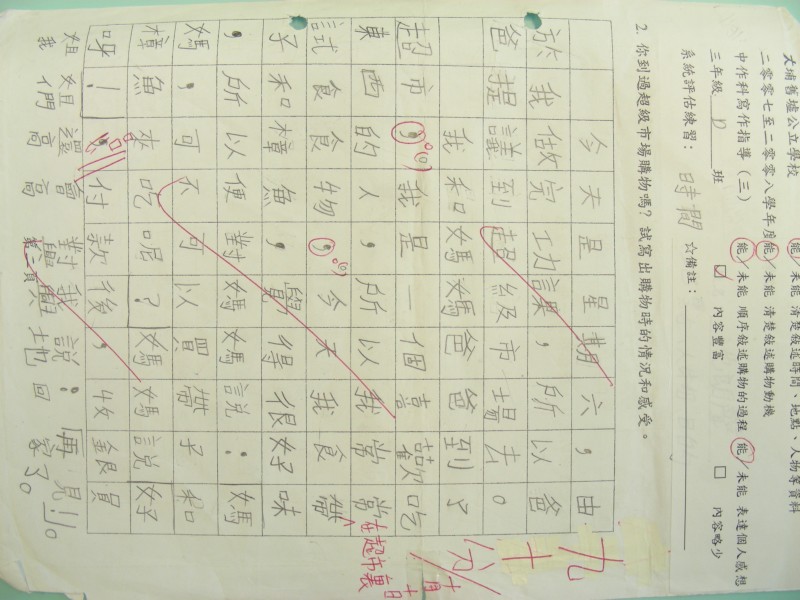 大埔舊墟公立學校
二零零七至二零零八學年度
中作科寫作指導(三)
三年級 D 班
系統評估練習: 時間 ☆備註:
能/未能 清楚敍述時間、地點、人物等資料
能/未能 清楚敍述購物動機
能/未能 順序敍述購物的過程 能/未能 表達個人感想
內容豐富 內容略少
2. 你到過超級市場購物嗎?試寫出購物時的情況和感受。
今天是星期六,由
於我做完功課,所以爸
爸提議到超級市場去。
我和媽媽爸爸到了
超市,我是一個喜歡吃
東西的人,所以我常常
試食食物,今天我食帶
子和樟魚,覺得很好味
,所以便對媽媽說:媽
媽,可不可以買帶子和
樟魚來吃呢?媽媽說好
呀!付款後,收銀員
姐姐們還會對我說:再見!
我高高興興地回家了。
第三頁
在超市裏
九十分